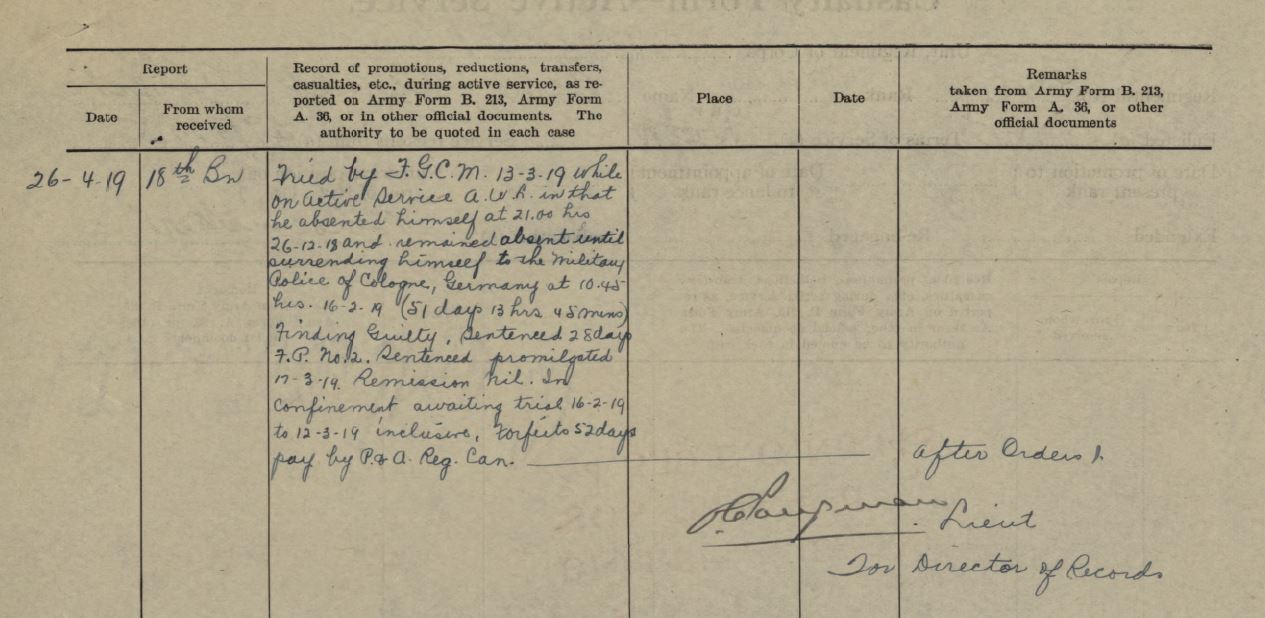 Report
Date
From whom
received
Record of promotions, reductions, transfers,
casualties, etc., during active service, as re-
ported on Army Form B. 213, Army Form
A. 36, or in other official documents. The
authority to be quoted in each case
Place
Date
Remarks
taken from Army Form B. 213,
Army Form A. 36, or other
official documents
26-4-19
18th Bn
Tried by F.G.C.M. 13-3-19 while
on Active Service A.W.L. in that
he absented himself at 21.00 hrs
26-12-18 and remained absent until
surrending himself to the Military
Police of Cologne, Germany at 10.45
hrs. 16-2-19 (51 days 13 hrs 45 mins)
Finding Guilty, Sentenced 28 days
F.P. No.2. Sentenced promilgated
17-3-19. Remission nil. In
Confinement awaiting trial 16-2-19
to 12-3-19 inclusive, Forfeits 52 days
pay by P.& A. Reg. Can.
After Orders 1
Lieut
For Director of Records